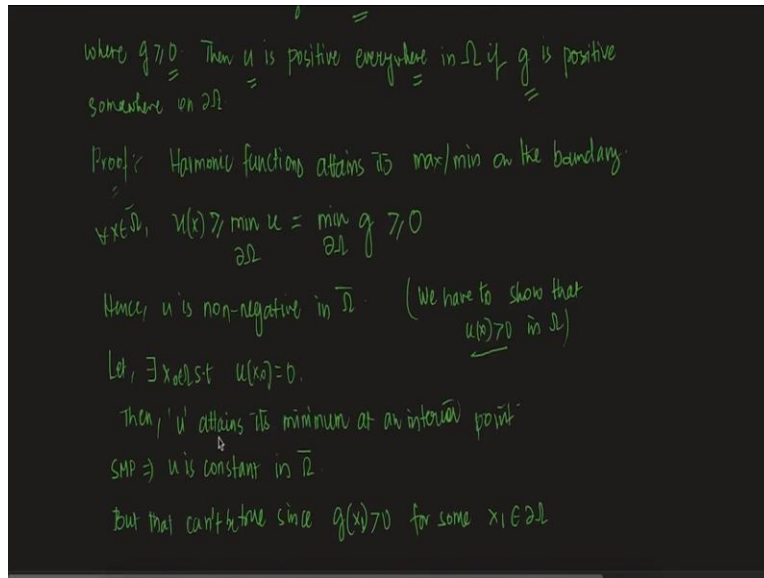 where g ⩾ 0. Then u is positive everywhere in Ω if g is positive
somewhere on ∂Ω
Proof: Harmonic functions attains its max/min on the boundary.
∀x∈Ω̅, u(x) ⩾ min u = min g ⩾ 0
∂Ω ∂Ω
Hence, u is non-negative in Ω̅. (We have to show that
u(x)>0 in Ω)
Let, ∃ x₀∈Ω s.t u(x₀)=0.
Then, 'u' attains its minimum at an interior point
SMP ⇒ u is constant in Ω̅.
But that can't be true since g(x₁)>0 for some x₁ ∈ ∂Ω